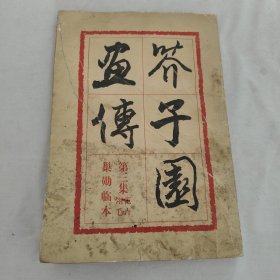 芥子園
畫傳
第一集
巢勛临本